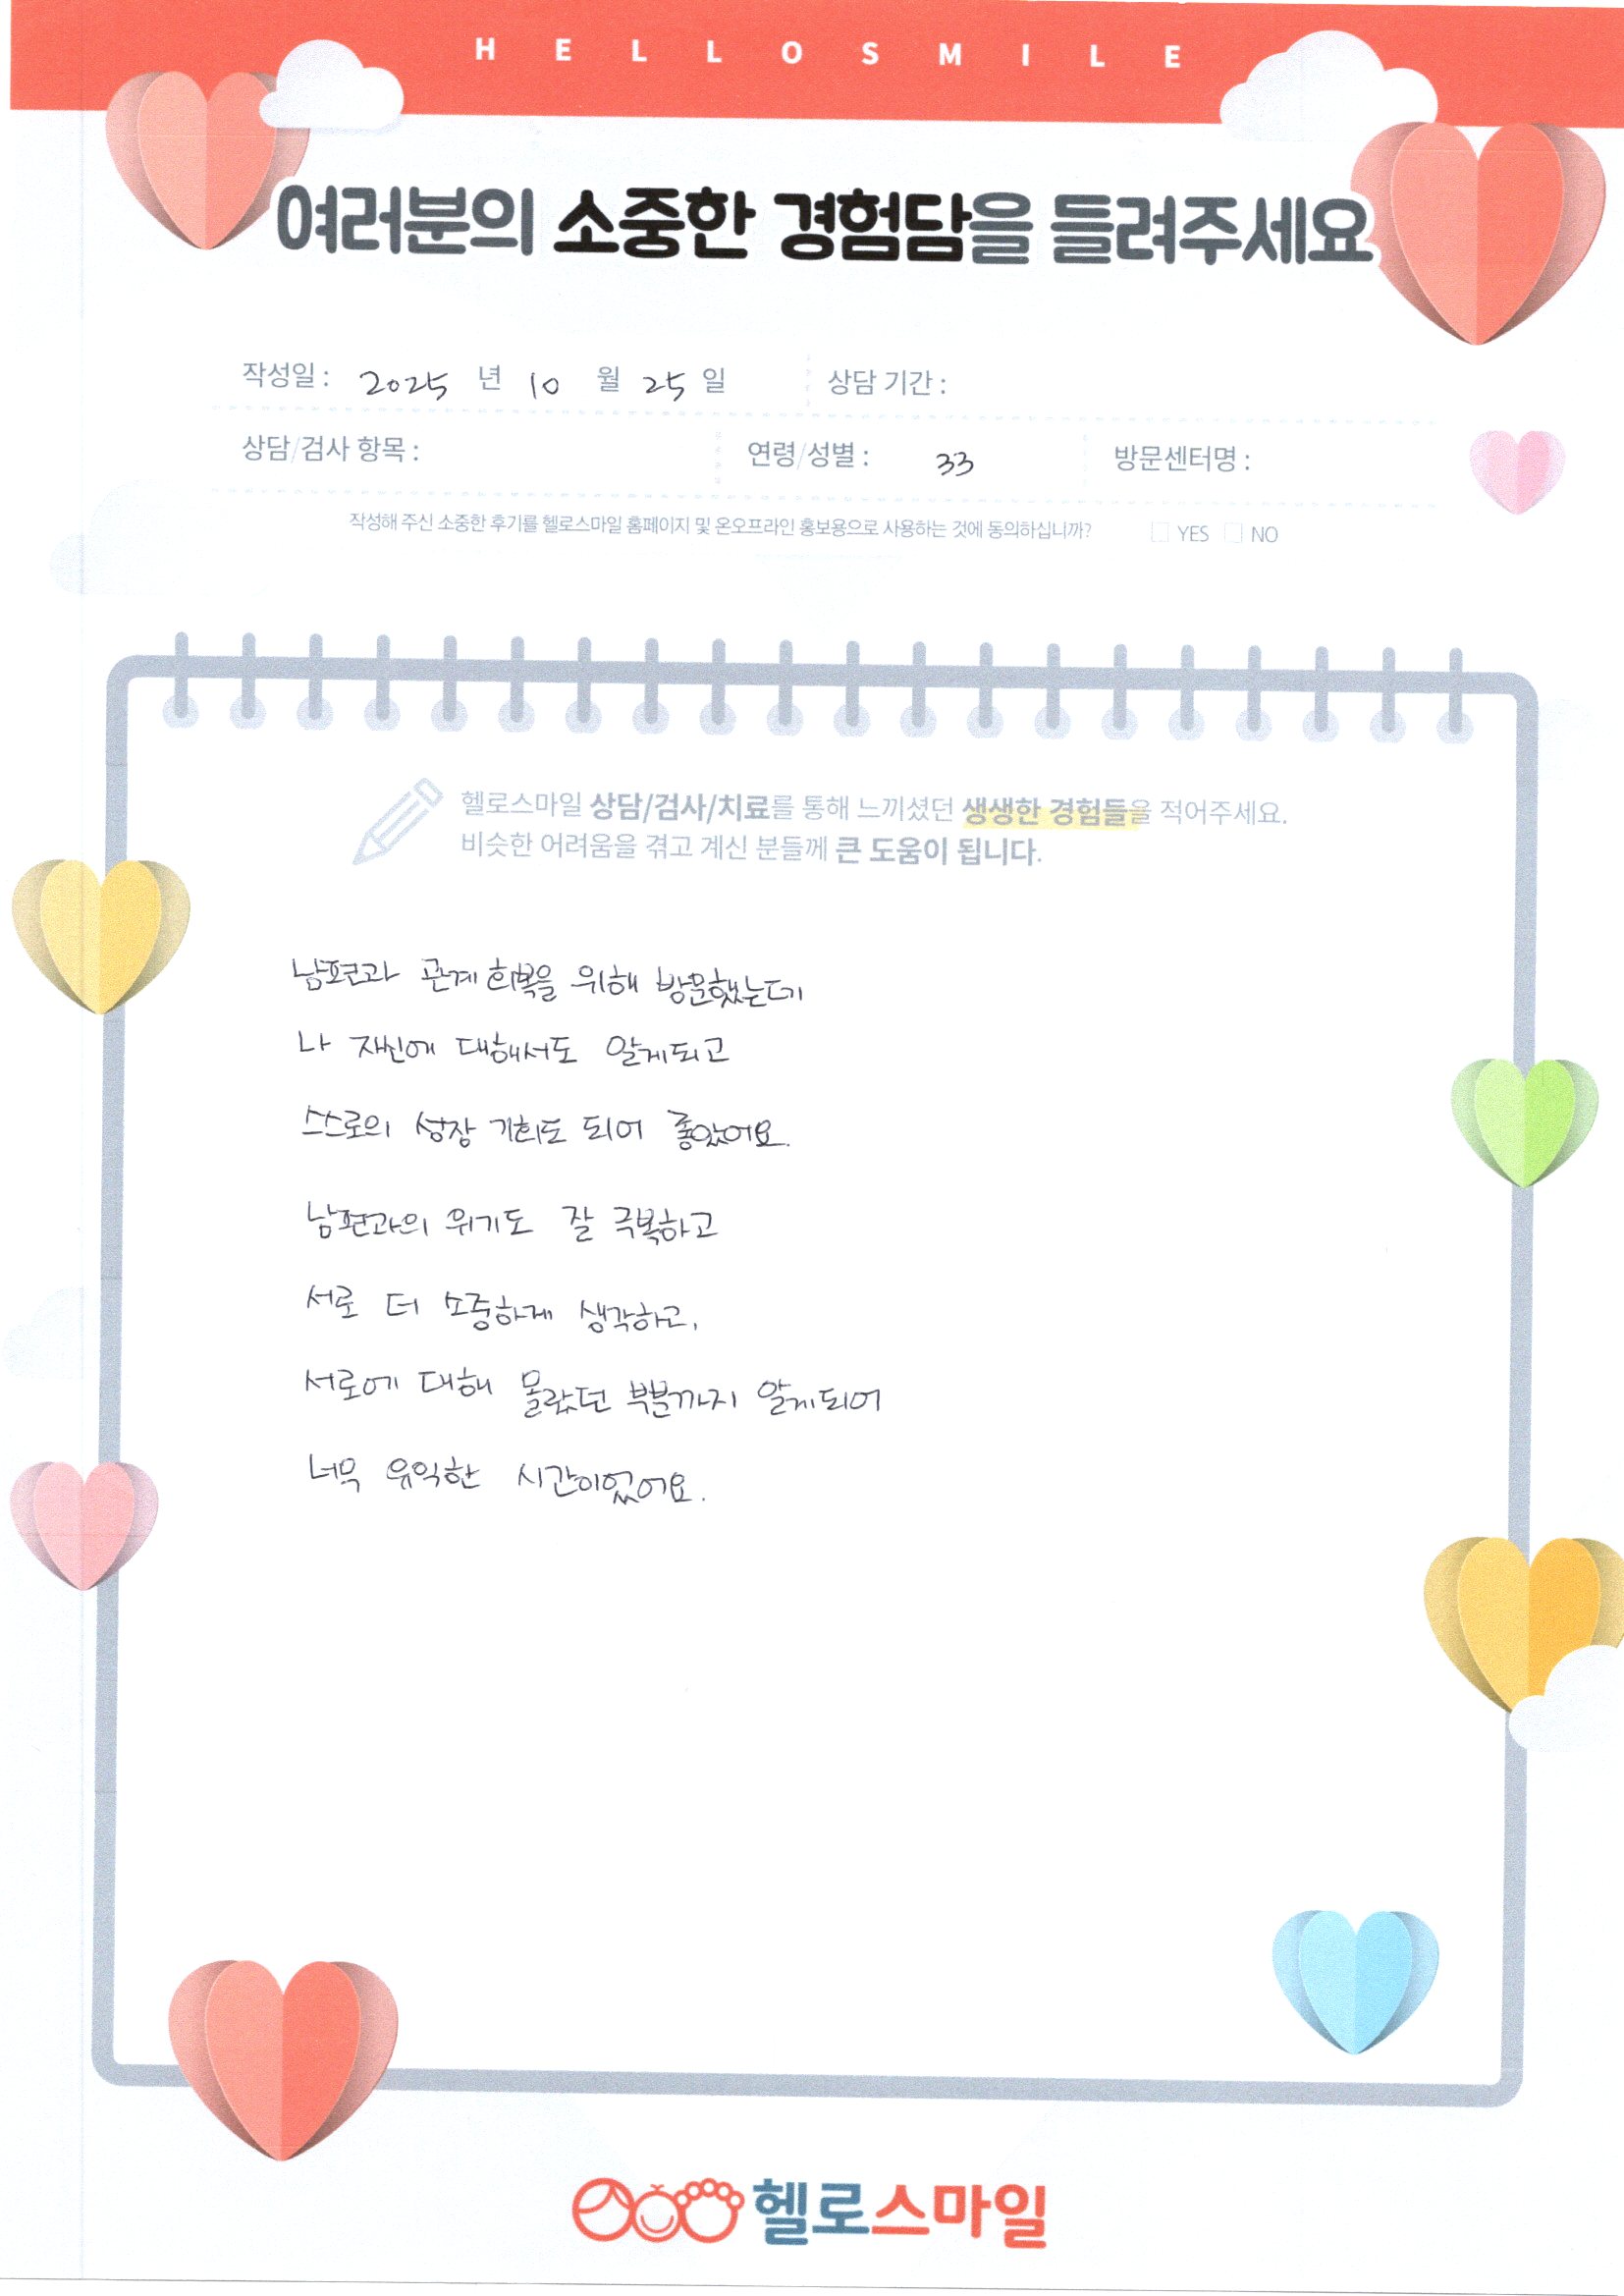 HELLOSMILE
여러분의 소중한 경험담을 들려주세요
작성일 : 2025 년 10 월 25 일 상담 기간 :
상담/검사 항목 : 연령/성별 : 33 방문센터명 :
작성해 주신 소중한 후기를 헬로스마일 홈페이지 및 온오프라인 홍보용으로 사용하는 것에 동의하십니까? YES NO
헬로스마일 상담/검사/치료를 통해 느끼셨던 생생한 경험들을 적어주세요.
비슷한 어려움을 겪고 계신 분들께 큰 도움이 됩니다.
남편과 관계 회복을 위해 방문했는데
나 자신에 대해서도 알게되고
스스로의 성장 기회도 되어 좋았어요.
남편과의 위기도 잘 극복하고
서로 더 소중하게 생각하고,
서로에 대해 몰랐던 부분까지 알게되어
너무 유익한 시간이었어요.
헬로스마일